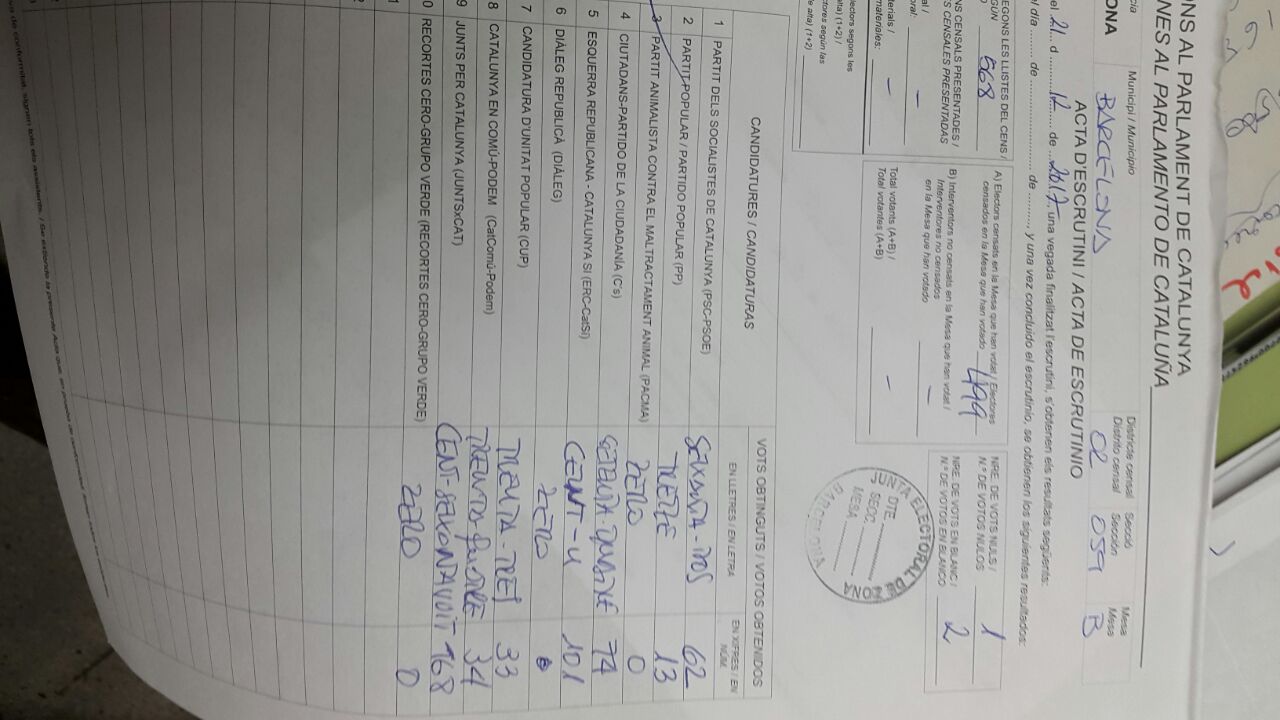 NS AL PARLAMENT DE CATALUNYA
NES AL PARLAMENTO DE CATALUÑA
cia
ONA
Municipi / Municipio
BARCELONA
Districte censal
Distrito censal
02
Secció
Sección
Mesa
Mesa
B
ACTA D'ESCRUTINI / ACTA DE ESCRUTINIO
el 21 d 12 de 2017 una vegada finalitzat l'escrutini, s'obtenen els resultats següents:
l día de de y una vez concluido el escrutinio, se obtienen los siguientes resultados:
EGONS LES LLISTES DEL CENS /
568
NS CENSALS PRESENTADES /
S CENSALES PRESENTADAS
A) Electors censats en la Mesa que han votat / Electores
censados en la Mesa que han votado 499
B) Interventors no censats en la Mesa que han votat /
Interventores no censados
en la Mesa que han votado –
Total votants (A+B) /
Total votantes (A+B) –
NRE. DE VOTS NULS /
N.º DE VOTOS NULOS 1
NRE. DE VOTS EN BLANC /
N.º DE VOTOS EN BLANCO 2
materiales: –
lectors segons les
alta) (1+2) /
ctores según las
e alta) (1+2)
JUNTA ELECTORAL DE ZONA
DTE.
SECC.
MESA
BARCELONA
CANDIDATURES / CANDIDATURAS
VOTS OBTINGUTS / VOTOS OBTENIDOS
EN LLETRES / EN LETRA
EN XIFRES / EN NÚM.
1 PARTIT DELS SOCIALISTES DE CATALUNYA (PSC-PSOE) SEIXANTA-DOS 62
2 PARTIT POPULAR / PARTIDO POPULAR (PP) TRETZE 13
3 PARTIT ANIMALISTA CONTRA EL MALTRACTAMENT ANIMAL (PACMA) ZERO 0
4 CIUTADANS-PARTIDO DE LA CIUDADANÍA (C's) SETANTA-QUATRE 74
5 ESQUERRA REPUBLICANA - CATALUNYA SI (ERC-CatSí) CENT-U 101
6 DIÀLEG REPUBLICÀ (DIÀLEG) ZERO 0
7 CANDIDATURA D'UNITAT POPULAR (CUP) TRENTA-TRES 33
8 CATALUNYA EN COMÚ-PODEM (CatComú-Podem) TRENTA-QUATRE 34
9 JUNTS PER CATALUNYA (JUNTSxCAT) CENT-SEIXANTAVUIT 168
0 RECORTES CERO-GRUPO VERDE (RECORTES CERO-GRUPO VERDE) ZERO 0
1
2